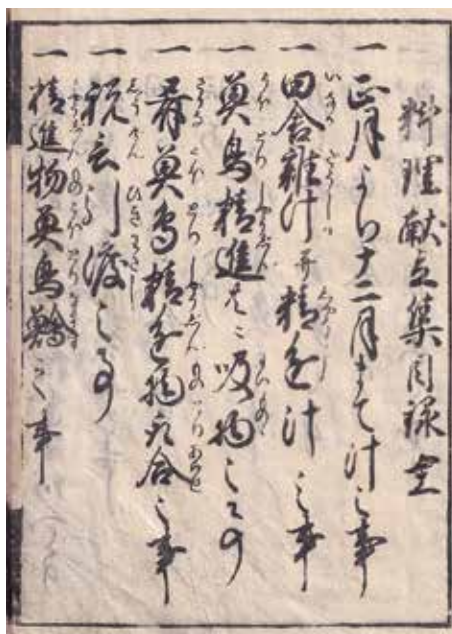 料理献立集目録全
一 正月より十二月まて汁之事
一 田舎雑汁并精進汁之事
一 魚鳥精進共ニ吸物之事
一 肴魚鳥精進物取合之事
一 祝言引渡之事
一 精進物魚鳥鱠之事